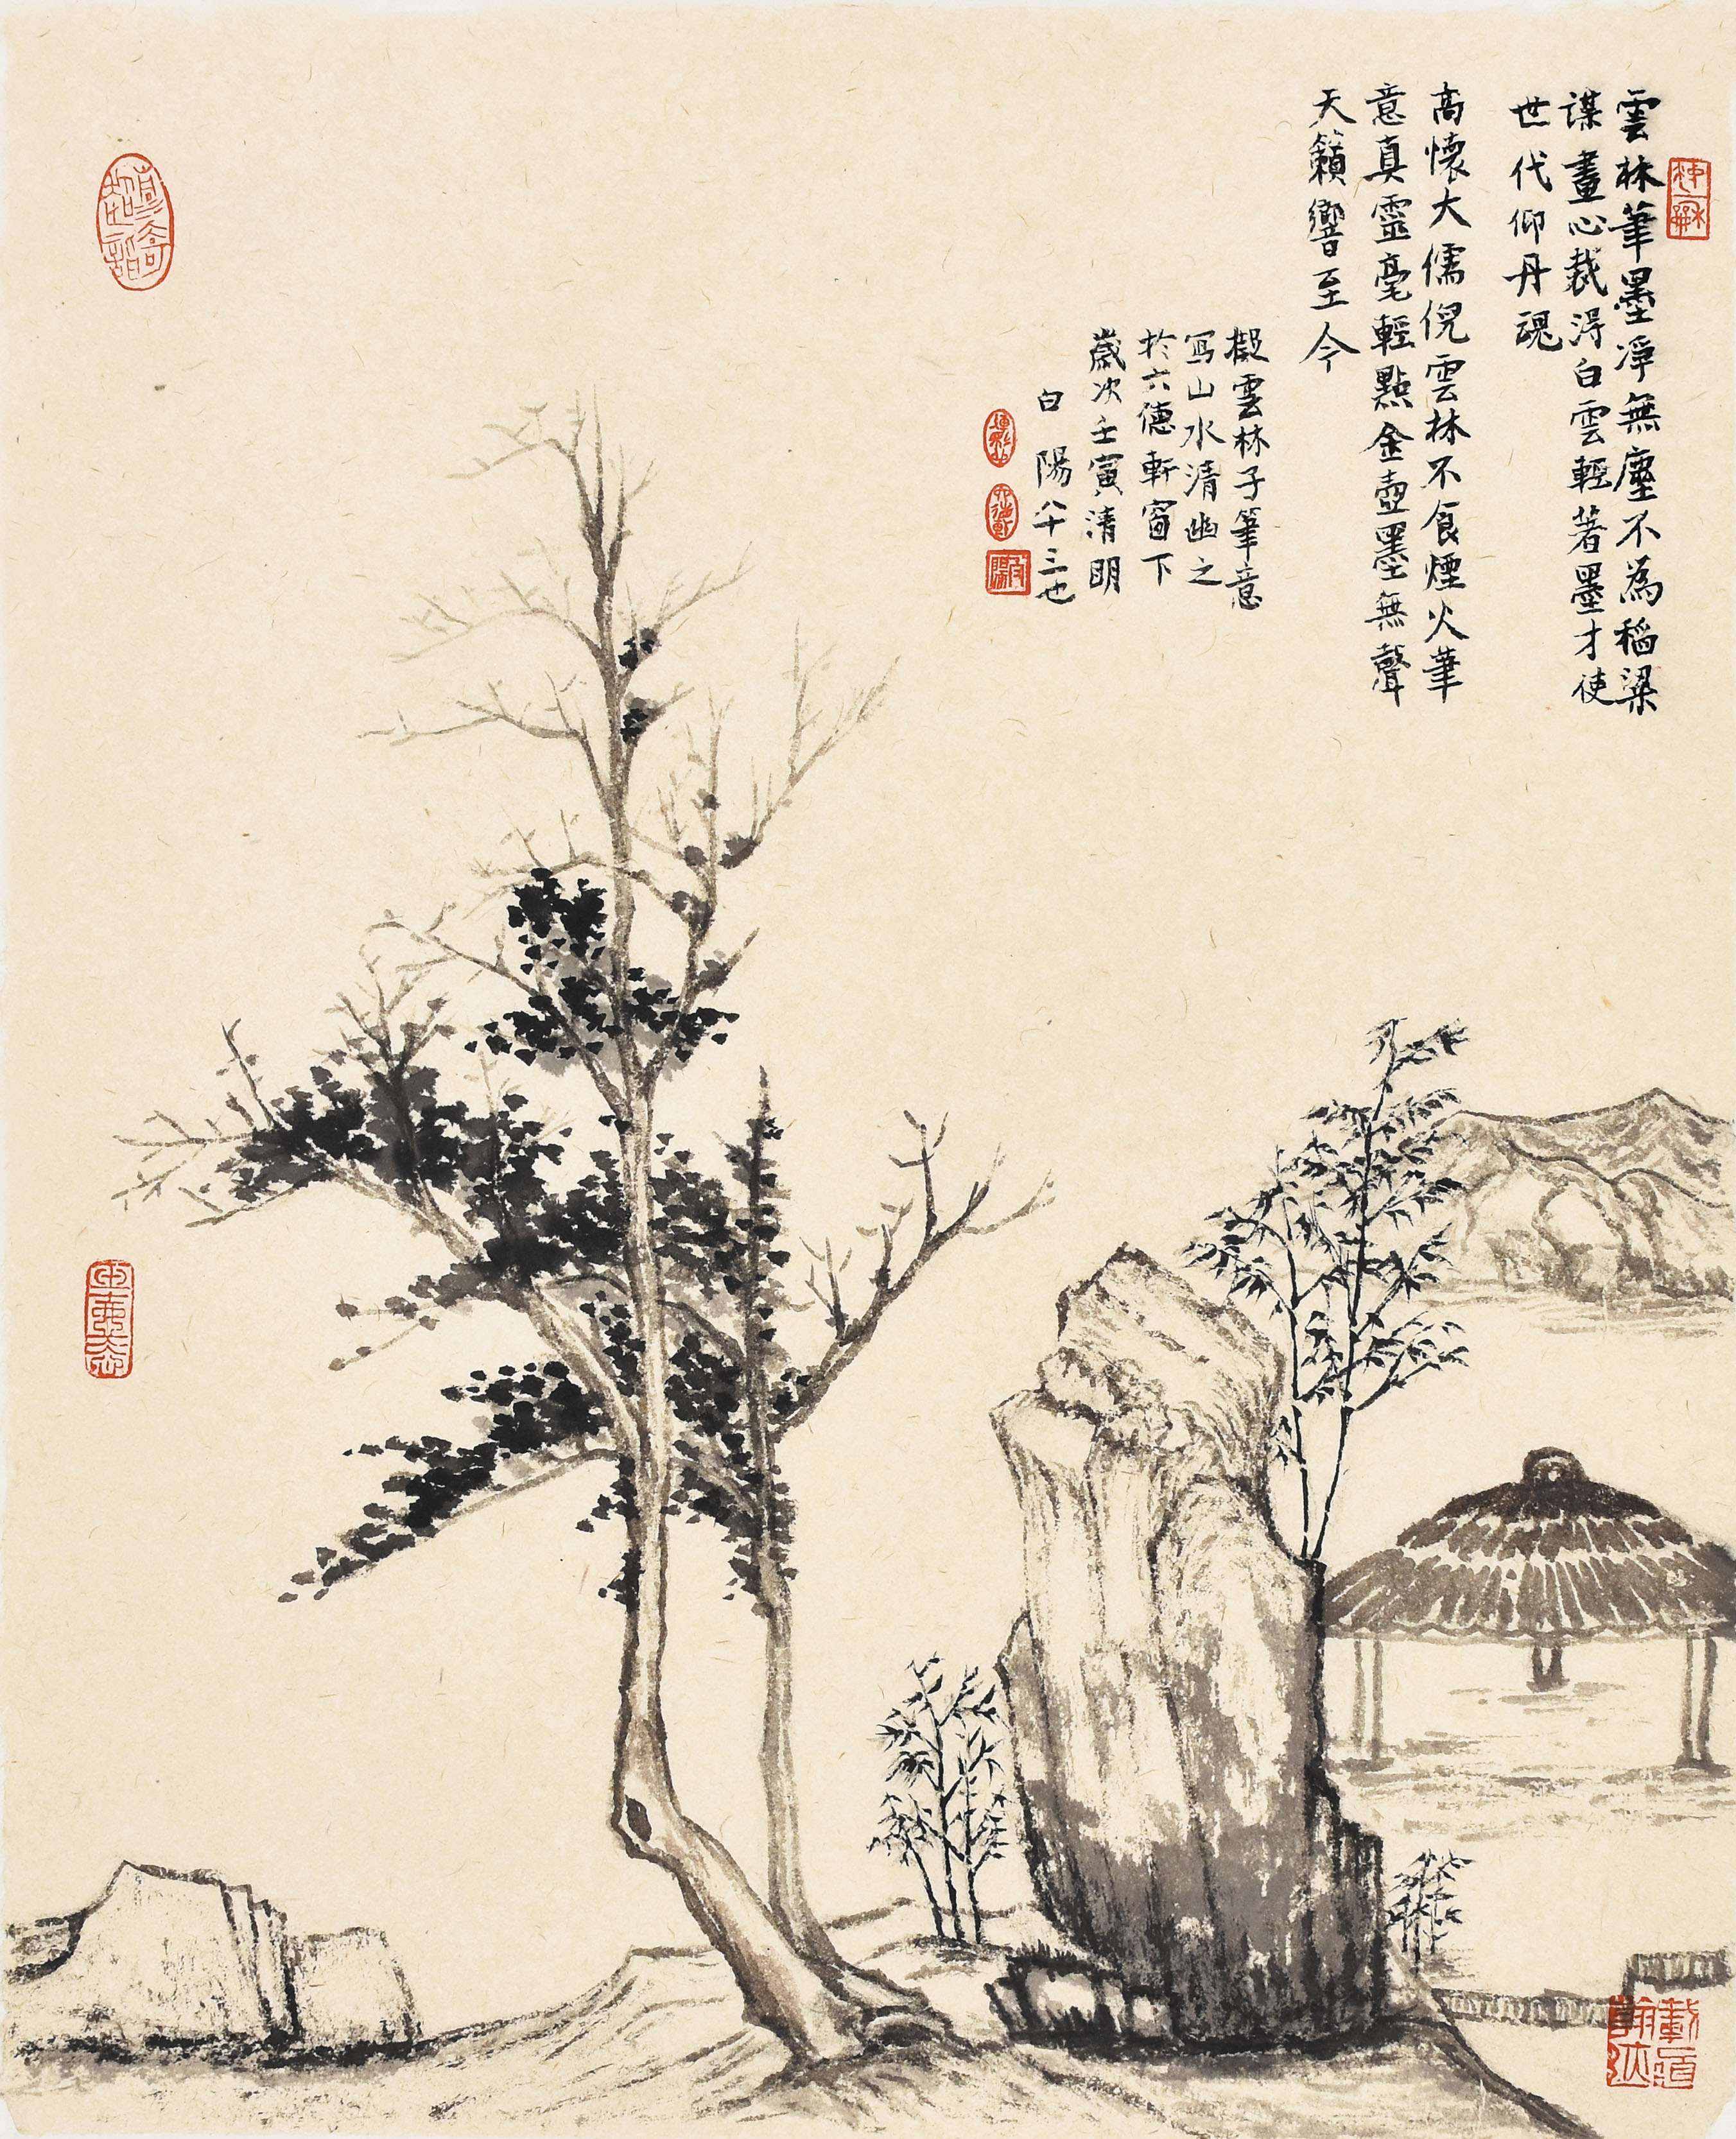 雲林筆墨淨無塵不為稻粱
謀畫心裁得白雲輕著墨才使
世代仰丹魂
高懷大儒倪雲林不食煙火筆
意真靈毫輕點金壺墨無聲
天籟響至今
擬雲林子筆意
寫山水清幽之
於六德軒窗下
歲次壬寅清明
白陽八十三也
載道